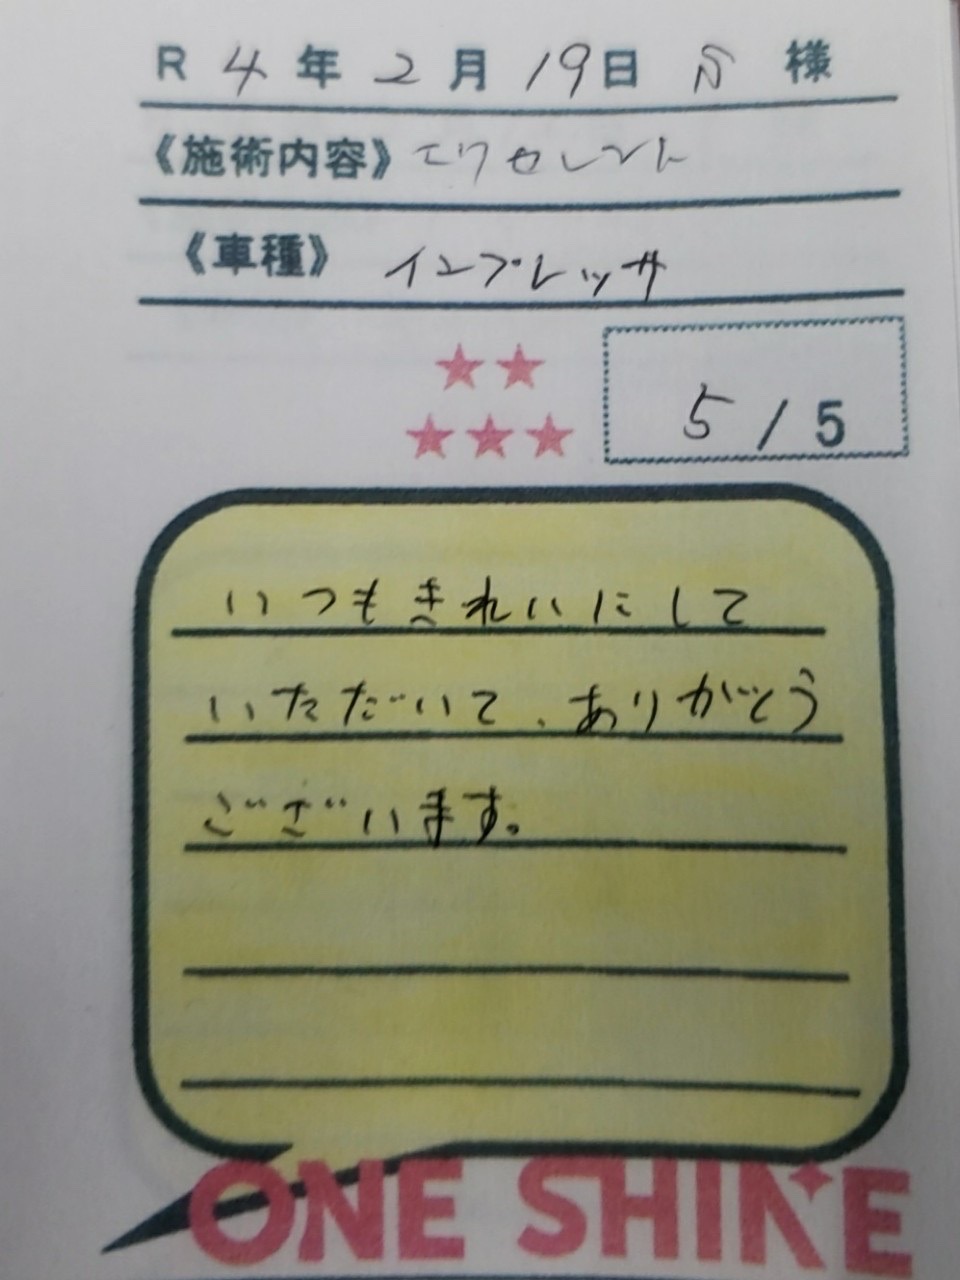 R 4年 2月 19日 S 様
《施術内容》エクセレント
《車種》インプレッサ
5/5
いつもきれいにして
いただいて、ありがとう
ございます。
ONE SHINE